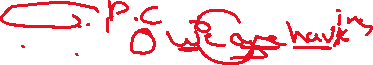 P.C
we are having